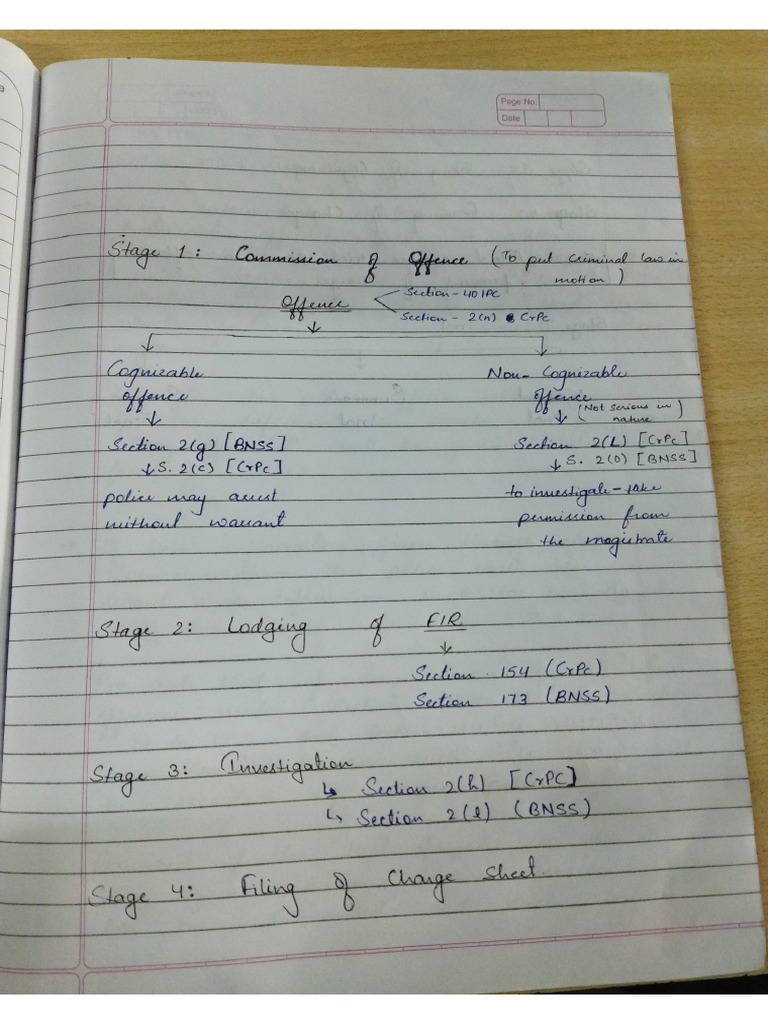 Page No.
Date
Stage 1: Commission of Offence (To put criminal law in
motion)
Offence
Section - 40 IPC
Section - 2(n) CrPC
Cognizable
offence
Section 2(g) [BNSS]
S. 2(c) [CrPC]
police may arrest
without warrant
Non-Cognizable
offence
(Not serious in
nature)
Section 2(L) [CrPC]
S. 2(o) [BNSS]
to investigate - take
permission from
the magistrate
Stage 2: Lodging of FIR
Section 154 (CrPC)
Section 173 (BNSS)
Stage 3: Investigation
Section 2(h) [CrPC]
Section 2(l) (BNSS)
Stage 4: Filing of Charge Sheet.